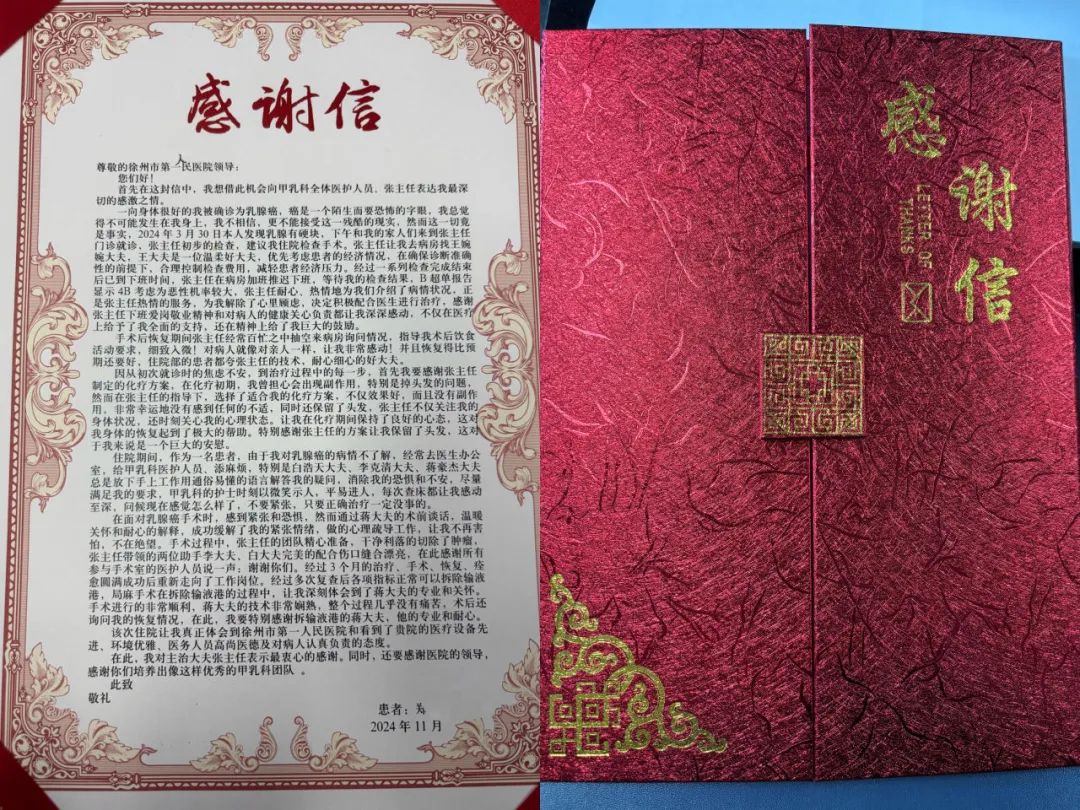 感谢信
尊敬的徐州市第一人民医院领导：
您们好！
首先在这封信中，我想借此机会向甲乳科全体医护人员、张主任表达我最深
切的感激之情。
一向身体很好的我被确诊为乳腺癌，癌是一个陌生而要恐怖的字眼，我总觉
得不可能发生在我身上，我不相信，更不能接受这一残酷的现实，然而这一切竟
是事实，2024 年 3 月 30 日本人发现乳腺有硬块，下午和我的家人们来到张主任
门诊就诊，张主任初步的检查，建议我住院检查手术，张主任让我去病房找王婉
婉大夫，王大夫是一位温柔好大夫，优先考虑患者的经济情况，在确保诊断准确
性的前提下，合理控制检查费用，减轻患者经济压力。经过一系列检查完成结束
后已到下班时间，张主任在病房加班推迟下班，等待我的检查结果，B 超单报告
显示 4B 考虑为恶性机率较大，张主任耐心、热情地为我们介绍了病情状况，正
是张主任热情的服务，为我解除了心里顾虑，决定积极配合医生进行治疗，感谢
张主任下班爱岗敬业精神和对病人的健康关心负责都让我深深感动，不仅在医疗
上给予了我全面的支持，还在精神上给了我巨大的鼓励。
手术后恢复期间张主任经常百忙之中抽空来病房询问情况，指导我术后饮食
活动要求，细致入微！对病人就像对亲人一样，让我非常感动！并且恢复得比预
期还要好，住院部的患者都夸张主任的技术，耐心细心的好大夫。
因从初次就诊时的焦虑不安，到治疗过程中的每一步，首先我要感谢张主任
制定的化疗方案，在化疗初期，我曾担心会出现副作用，特别是掉头发的问题，
然而在张主任的指导下，选择了适合我的化疗方案，不仅效果好，而且没有副作
用，非常幸运地没有感到任何的不适，同时还保留了头发，张主任不仅关注我的
身体状况，还时刻关心我的心理状态。让我在化疗期间保持了良好的心态，这对
我身体的恢复起到了极大的帮助。特别感谢张主任的方案让我保留了头发，这对
于我来说是一个巨大的安慰。
住院期间，作为一名患者，由于我对乳腺癌的病情不了解，经常去医生办公
室，给甲乳科医护人员、添麻烦，特别是白浩天大夫、李克清大夫、蒋豪杰大夫
总是放下手上工作用通俗易懂的语言解答我的疑问，消除我的恐惧和不安，尽量
满足我的要求，甲乳科的护士时刻以微笑示人，平易进人，每次查床都让我感动
至深，问候现在感觉怎么样了，不要紧张，只要正确治疗一定没事的。
在面对乳腺癌手术时，感到紧张和恐惧，然而通过蒋大夫的术前谈话，温暖
关怀和耐心的解释，成功缓解了我的紧张情绪，做的心理疏导工作，让我不再害
怕，不在绝望。手术过程中，张主任的团队精心准备，干净利落的切除了肿瘤，
张主任带领的两位助手李大夫、白大夫完美的配合伤口缝合漂亮，在此感谢所有
参与手术室的医护人员说一声：谢谢你们。经过 3 个月的治疗、手术、恢复、痊
愈圆满成功后重新走向了工作岗位。经过多次复查后各项指标正常可以拆除输液
港，局麻手术在拆除输液港的过程中，让我深刻体会到了蒋大夫的专业和关怀。
手术进行的非常顺利，蒋大夫的技术非常娴熟，整个过程几乎没有痛苦，术后还
询问我的恢复情况，在此，我要特别感谢拆输液港的蒋大夫，他的专业和耐心。
该次住院让我真正体会到徐州市第一人民医院和看到了贵院的医疗设备先
进、环境优雅、医务人员高尚医德及对病人认真负责的态度。
在此，我对主治大夫张主任表示最衷心的感谢。同时，还要感谢医院的领导，
感谢你们培养出像这样优秀的甲乳科团队 。
此致
敬礼
患者：
2024 年 11 月
感谢信
LETTER OF
THANKS